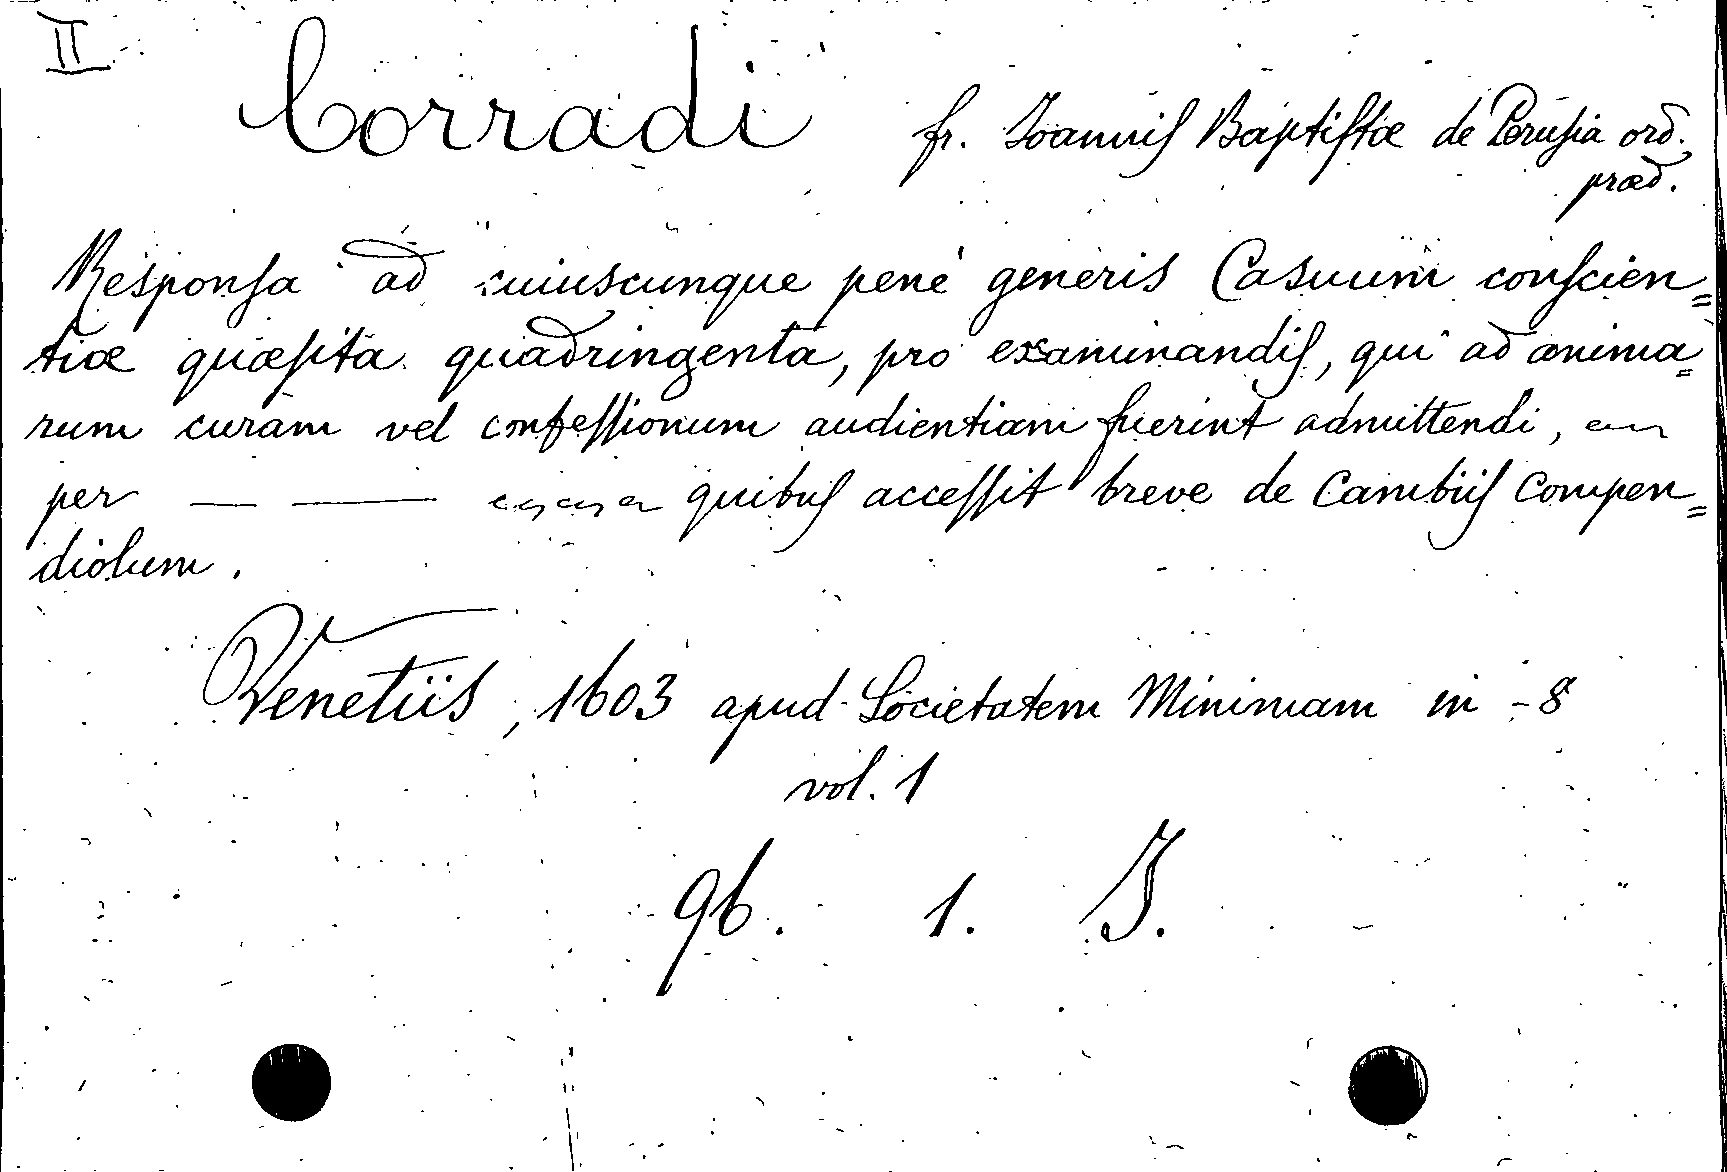 II
Corradi fr. Joannis Baptistæ de Perusia ord.
præd.
Responsa ad cuiuscunque penè generis Casuum conscien=
tiæ quæsita quadringenta, pro examinandis, qui ad anima=
rum curam vel confessionum audientiam fuerint admittendi,
per — — quibus accessit breve de Cambiis Compen=
diolum.
Venetiis, 1603 apud Societatem Minimam in -8
vol. 1
96. 1. J.